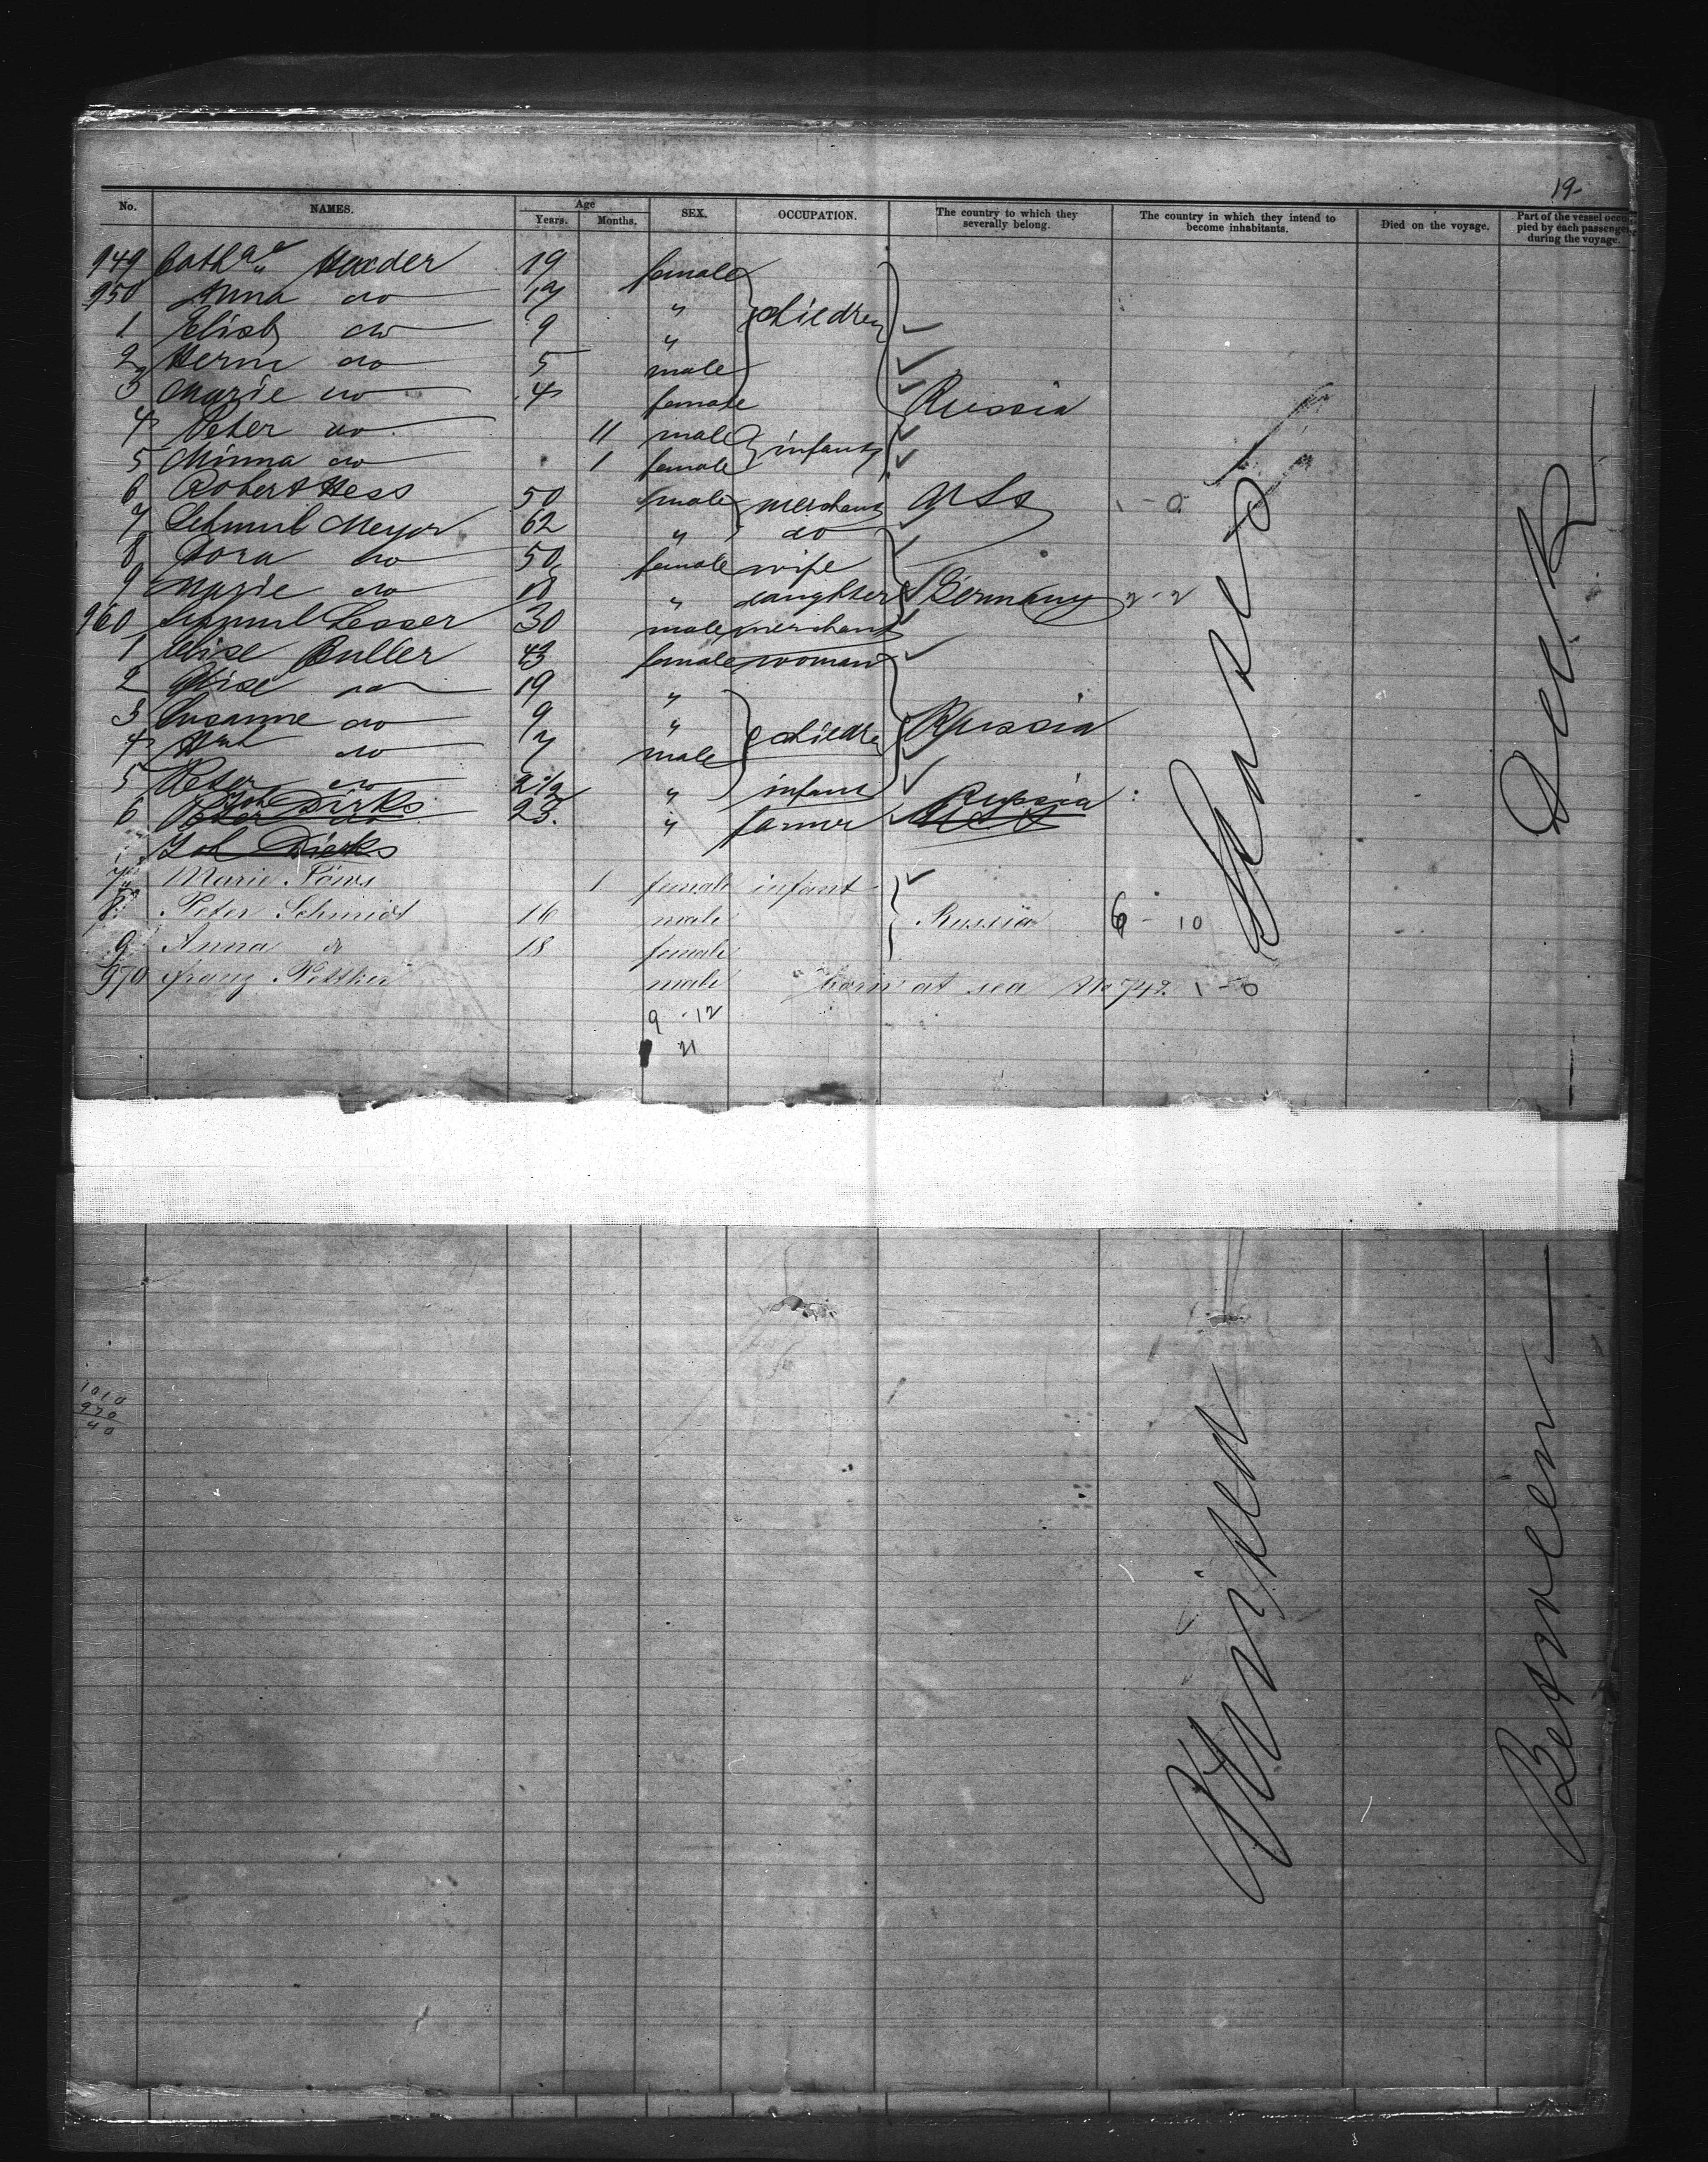 19-
No. NAMES. Age Years. Months. SEX. OCCUPATION. The country to which they severally belong. The country in which they intend to become inhabitants. Died on the voyage. Part of the vessel occupied by each passenger during the voyage.
949 Cath^a 19 female
950 Anna do 17 "
1 Elisb do 9 " children
2 Herm do 5 male
3 Marie do 4 female Russia
4 Peter do 11 male
5 Minna do 1 female infants
6 Robert Hess 50 male merchant U S 1 - 0
7 Schmul Meyer 62 " do
8 Dora do 50 female wife
9 Marie do 18 " daughter Germany 2 - 2
960 Schmul Lesser 30 male merchant
1 Elise Buller 43 female woman
2 Elise do 19 "
3 Susanne do 9 " children Russia
4 do 7 male
5 Peter do 2 1/2 " infant
6 Joh Dirks 23. " farmer Russia
Joh Dirks
7 Marie Töws 1 female infant
8 Peter Schmidt 16 male Russia 6 - 10
9 Anna do 18 female
970 Franz Pettker male born at sea No 742. 1 - 0
9 - 12
21
United States
Between Deck
1010
970
40